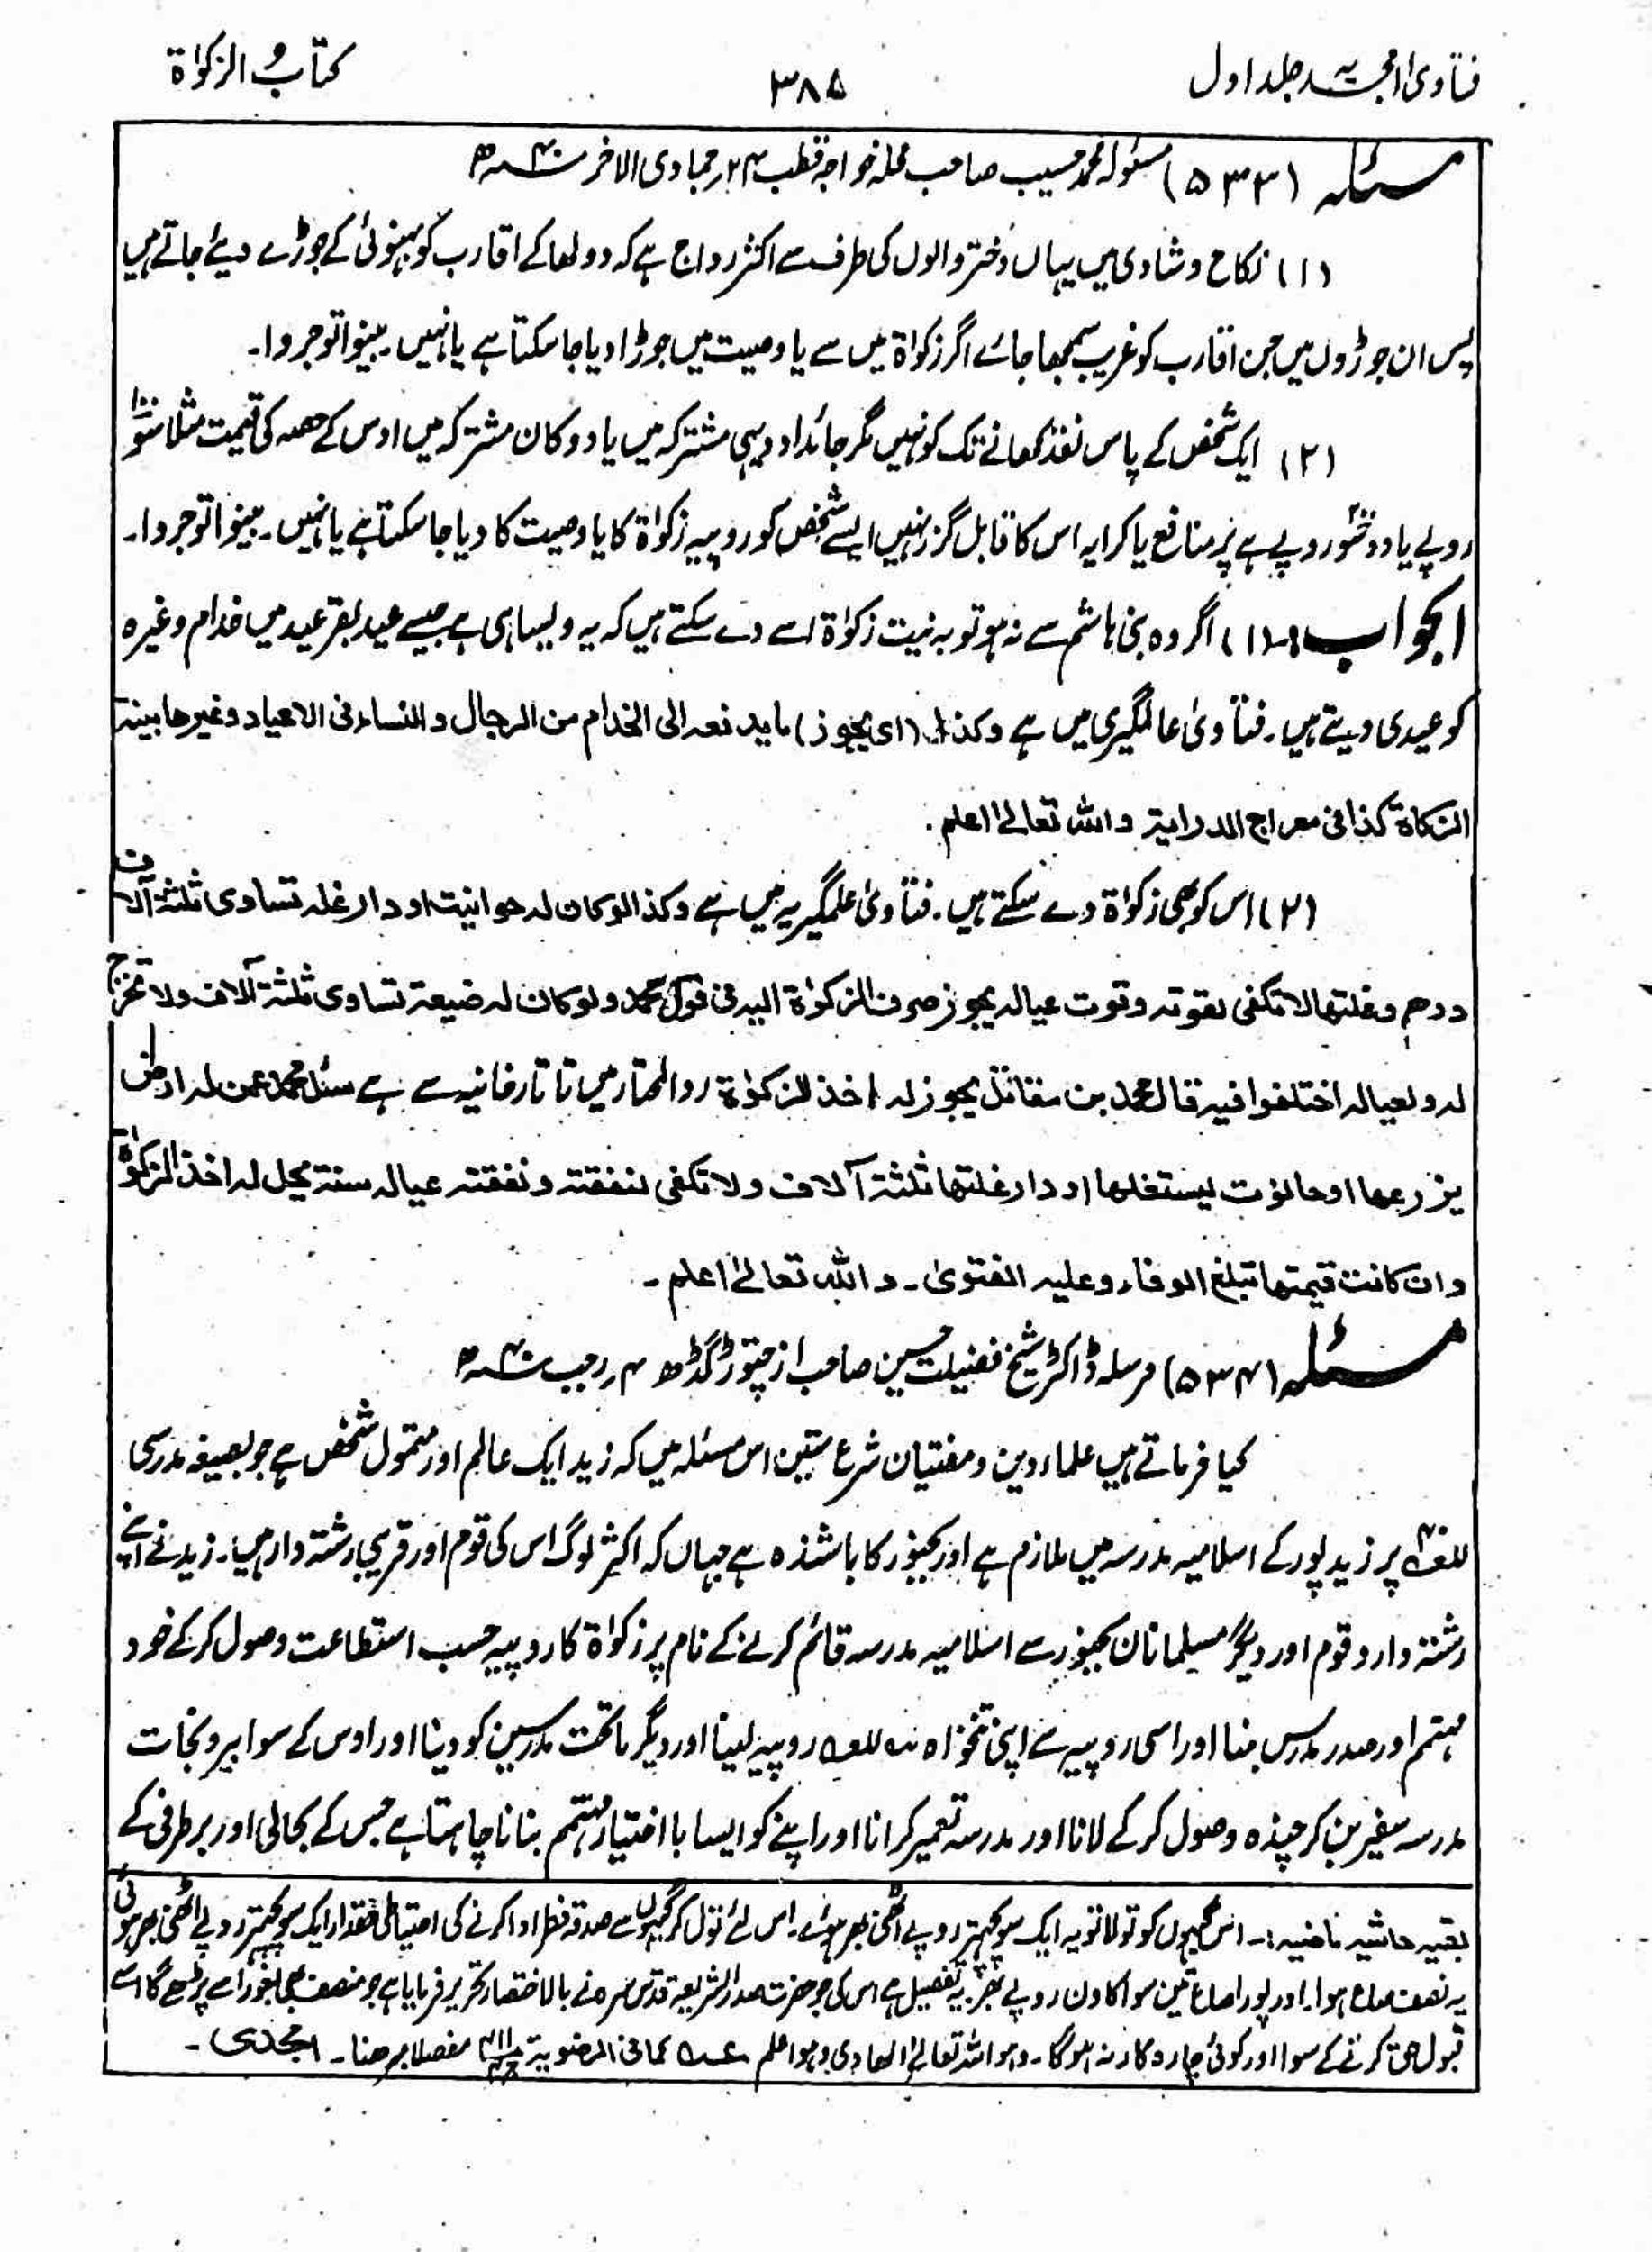 فتاویٰ امجدیہ جلد اول
۳۸۵
کتابُ الزکوٰۃ
مسئلہ (۵۳۳) مسئولہ محمد حسیب صاحب محلہ خواجہ قطب ۲۴؍جمادی الاخر ۴۰ھ
(۱) نکاح و شادی میں یہاں دختر والوں کی طرف سے اکثر رواج ہے کہ دولھا کے اقارب کو بہنوئی کے جوڑے دیئے جاتے ہیں
پس ان جوڑوں میں جن اقارب کو غریب سمجھا جائے اگر زکواۃ میں سے یا وصیت میں جوڑا دیا جا سکتا ہے یا نہیں۔ بینوا توجروا۔
(۲) ایک شخص کے پاس نقد کھانے تک کو نہیں مگر جائداد دیہی مشترکہ میں یا دوکان مشترکہ میں اوس کے حصہ کی قیمت مثلاً سو
روپے یا دو سو روپے ہے پر منافع یا کرایہ اس کا قابل گزر نہیں ایسے شخص کو روپیہ زکوٰۃ کا یا وصیت کا دیا جا سکتا ہے یا نہیں۔ بینوا توجروا۔
الجواب :۔ (۱) اگر وہ بنی ہاشم سے نہ ہو تو بہ نیت زکوٰۃ اسے دے سکتے ہیں کہ یہ ویسا ہی ہے جیسے عید بقرعید میں خدام وغیرہ
کو عیدی دیتے ہیں۔ فتاویٰ عالمگیری میں ہے وکذا (ای یجوز) ما یدفعہ الی الخدام من الرجال و النساء فی الاعیاد وغیرھا بنیۃ
الزکاۃ کذا فی معراج الدرایۃ واللہ تعالیٰ اعلم۔
(۲) اس کو بھی زکواۃ دے سکتے ہیں۔ فتاویٰ علمگیریہ میں ہے وکذا لو کان لہ حوانیت او دار غلہ تساوی ثلثۃ آلاف
درھم وغلتھا لا تکفی لقوتہ وقوت عیالہ یجوز صرف الزکوٰۃ الیہ فی قول محمد ولو کان لہ ضیعۃ تساوی ثلثۃ آلاف ولا تخرج
لہ ولعیالہ اختلفوا فیہ قال محمد بن مقاتل یجوز لہ اخذ الزکوٰۃ ردالمحتار میں تاتارخانیہ سے ہے سئل محمد عمن لہ ارض
یزرعھا او حانوت یستغلھا او دار غلتھا ثلثۃ آلاف ولا تکفی لنفقتہ ونفقتہ عیالہ سنۃ یحل لہ اخذ الزکوٰۃ
وان کانت قیمتھا تبلغ الوفا و علیہ الفتویٰ۔ واللہ تعالیٰ اعلم۔
مسئلہ (۵۳۴) مرسلہ ڈاکٹر شیخ فضیلت حسین صاحب از چتوڑ گڈھ ۴؍رجب ۴۰ھ
کیا فرماتے ہیں علماء دین و مفتیان شرع متین اس مسئلہ میں کہ زید ایک عالم اور متمول شخص ہے جو بصیغہ مدرسی
پر زید پور کے اسلامیہ مدرسہ میں ملازم ہے اور بجنور کا باشندہ ہے جہاں کہ اکثر لوگ اس کی قوم اور قریبی رشتہ دار ہیں۔ زید نے اپنے
رشتہ دار و قوم اور دیگر مسلمانان بجنور سے اسلامیہ مدرسہ قائم کرنے کے نام پر زکواۃ کا روپیہ حسب استطاعت وصول کر کے خود
مہتمم اور صدر مدرس بننا اور اسی روپیہ سے اپنی تنخواہ روپیہ لینا اور دیگر ماتحت مدرسین کو دینا اور اوس کے سوا بیرونجات
مدرسہ سفیر بن کر چندہ وصول کر کے لانا اور مدرسہ تعمیر کرانا اور اپنے کو ایسا با اختیار مہتمم بنانا چاہتا ہے جس کے بحالی اور برطرفی کے
بقیہ حاشیہ ماضیہ :۔ اس گیہوں کو تولا تو یہ ایک سو پچہتر روپے اٹھنی بھر ہوئے۔ اس لئے تول کر گیہوں سے صدقہ فطر ادا کرنے کی احتیاطی مقدار ایک سو پچہتر روپے اٹھنی بھر ہوئی
یہ نصف صاع ہوا۔ اور پورا صاع تین سو اکاون روپے بھر یہ تفصیل ہے اس کی جو حضرت صدر الشریعہ قدس سرہ نے بالاختصار تحریر فرمایا ہے جو منصف بھی بغور اسے پڑھے گا اسے
قبول حق کرنے کے سوا اور کوئی چارہ کار نہ ہوگا۔ وہو اللہ تعالیٰ الھادی وہو اعلم کما فی الرضویۃ مفصلا مبرھنا۔ امجدی۔